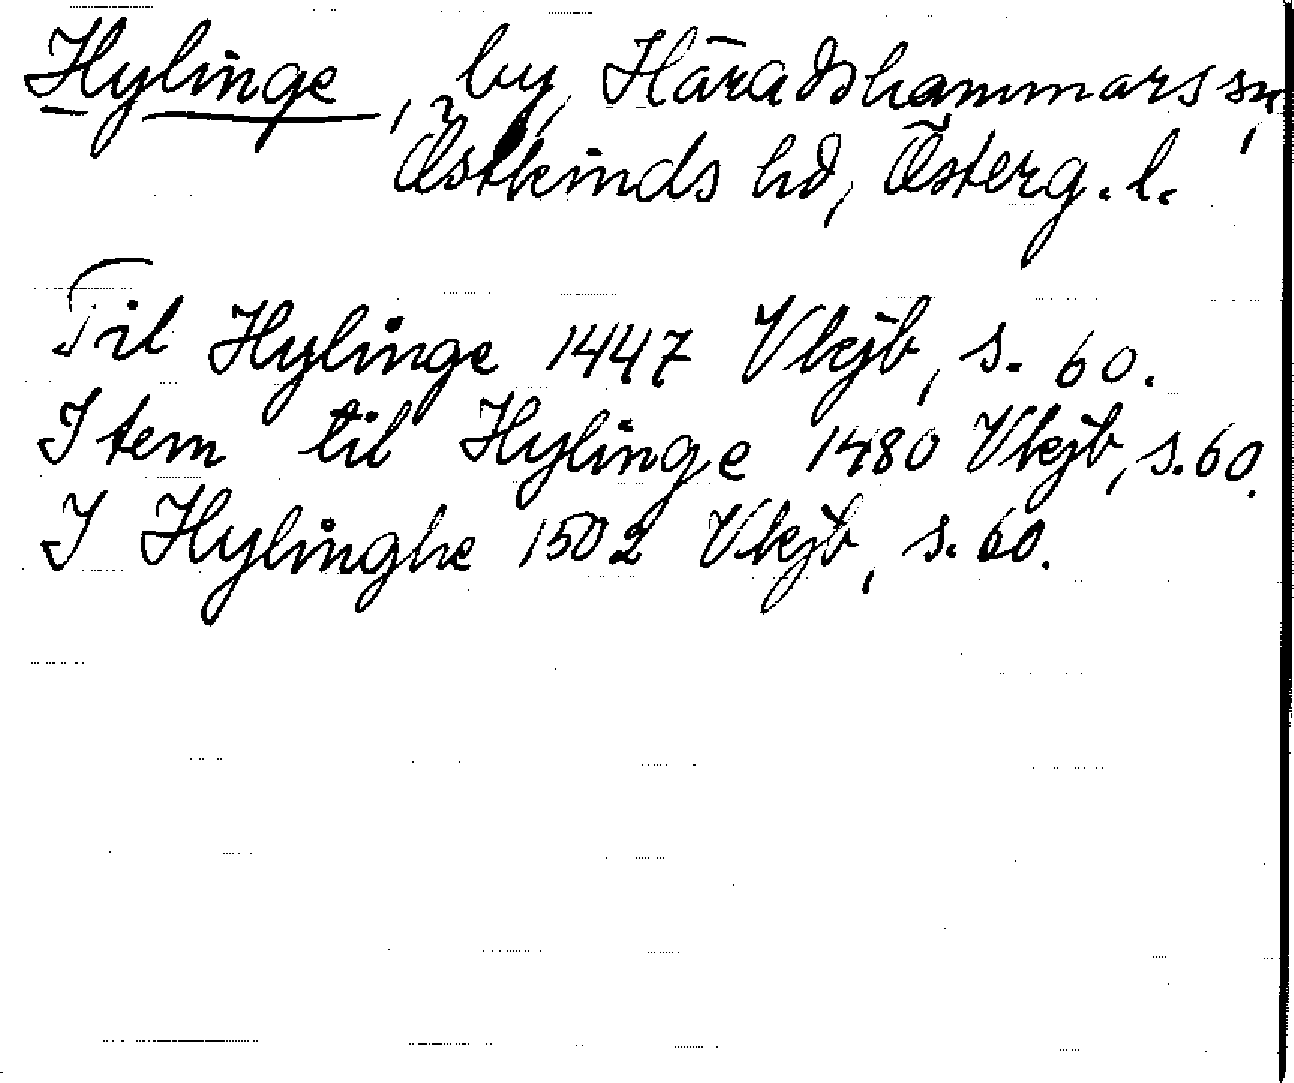 Hylinge, by, Häradshammars sn,
Östkinds hd, Österg. l.
Til Hylinge 1447 Vkjb, s. 60.
Item til Hylinge 1480 Vkjb, s. 60.
I Hylinghe 1502 Vkjb, s. 60.